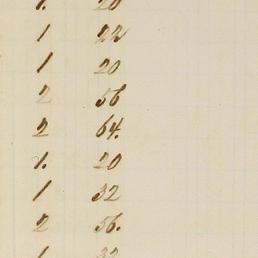 1. 20
1 22
1 20
2 56
2 64.
1. 20
1 32
2 56.
1 32